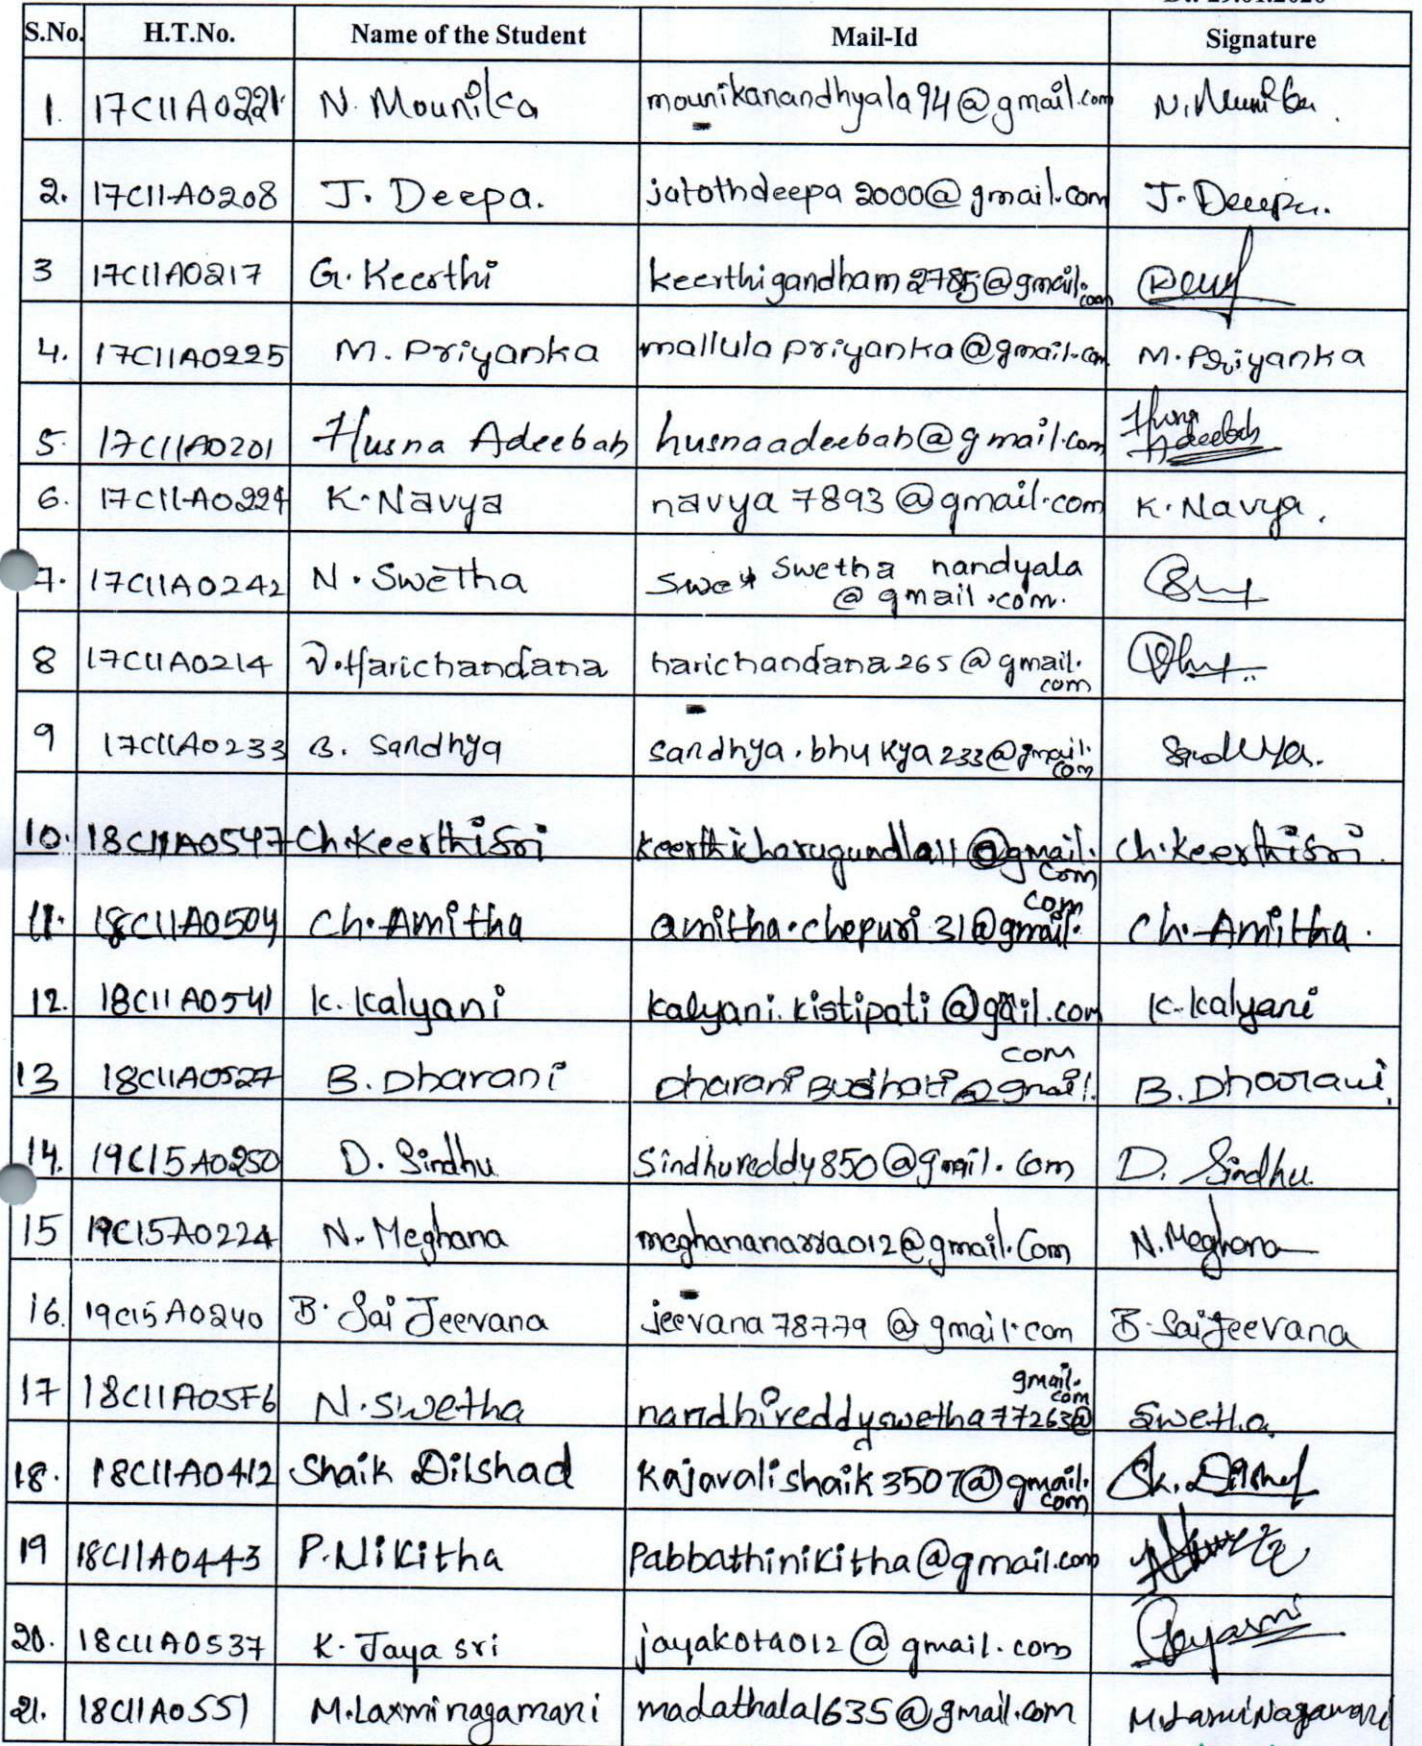 S.No. H.T.No. Name of the Student Mail-Id Signature
1. 17C11A0221 N. Mounika mounikanandhyala94@gmail.com N. Mounika.
2. 17C11A0208 J. Deepa. jatothdeepa2000@gmail.com J. Deepa.
3 17C11A0217 G. Keerthi keerthigandham2785@gmail.com
4. 17C11A0225 M. Priyanka mallulapriyanka@gmail.com M. Priyanka
5. 17C11A0201 Husna Adeebah husnaadeebah@gmail.com Husna Adeebah
6. 17C11A0224 K. Navya navya7893@gmail.com K. Navya.
7. 17C11A0242 N. Swetha swethanandyala
@gmail.com.
8 17C11A0214 V. Harichandana harichandana265@gmail.com
9 17C11A0233 B. Sandhya sandhya.bhukya233@gmail.com Sandhya.
10. 18C11A0547 Ch. Keerthi Sri keerthicharugundla11@gmail.com Ch. Keerthi Sri.
11. 18C11A0504 Ch. Amitha amitha.chepuri31@gmail.com Ch. Amitha.
12. 18C11A0541 K. Kalyani kalyani.kistipati@gmail.com K. Kalyani
13 18C11A0527 B. Dharani DharaniBudhati@gmail.com B. Dharani.
14. 19C15A0250 D. Sindhu Sindhureddy850@gmail.com D. Sindhu.
15 19C15A0224 N. Meghana meghananarra012@gmail.Com N. Meghana
16. 19C15A0240 B. Sai Jeevana jeevana78779@gmail.com B. Sai Jeevana
17 18C11A05F6 N. Swetha nandhireddyswetha77263@gmail.com Swetha.
18. 18C11A0412 Shaik Dilshad Kajavalishaik3507@gmail.com Sk. Dilshad
19 18C11A0443 P. Nikitha Pabbathinikitha@gmail.com
20. 18C11A0537 K. Jaya sri jayakota012@gmail.com Jayasri
21. 18C11A0551 M. Laxmi nagamani madathala1635@gmail.com M. Laxmi Nagamani